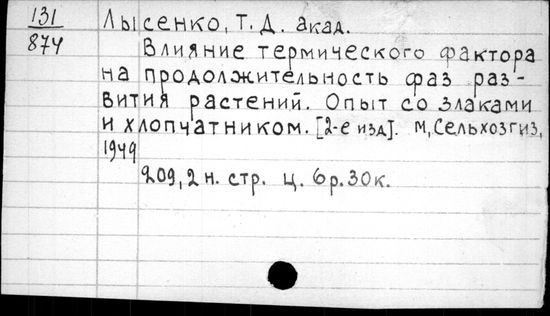 131
874
Лысенко, Т. Д. акад.
Влияние термического фактора
на продолжительность фаз раз-
вития растений. Опыт со злаками
и хлопчатником. [2-е изд]. М, Сельхозгиз,
1949
209, 2 н. стр. ц. 6р.30к.